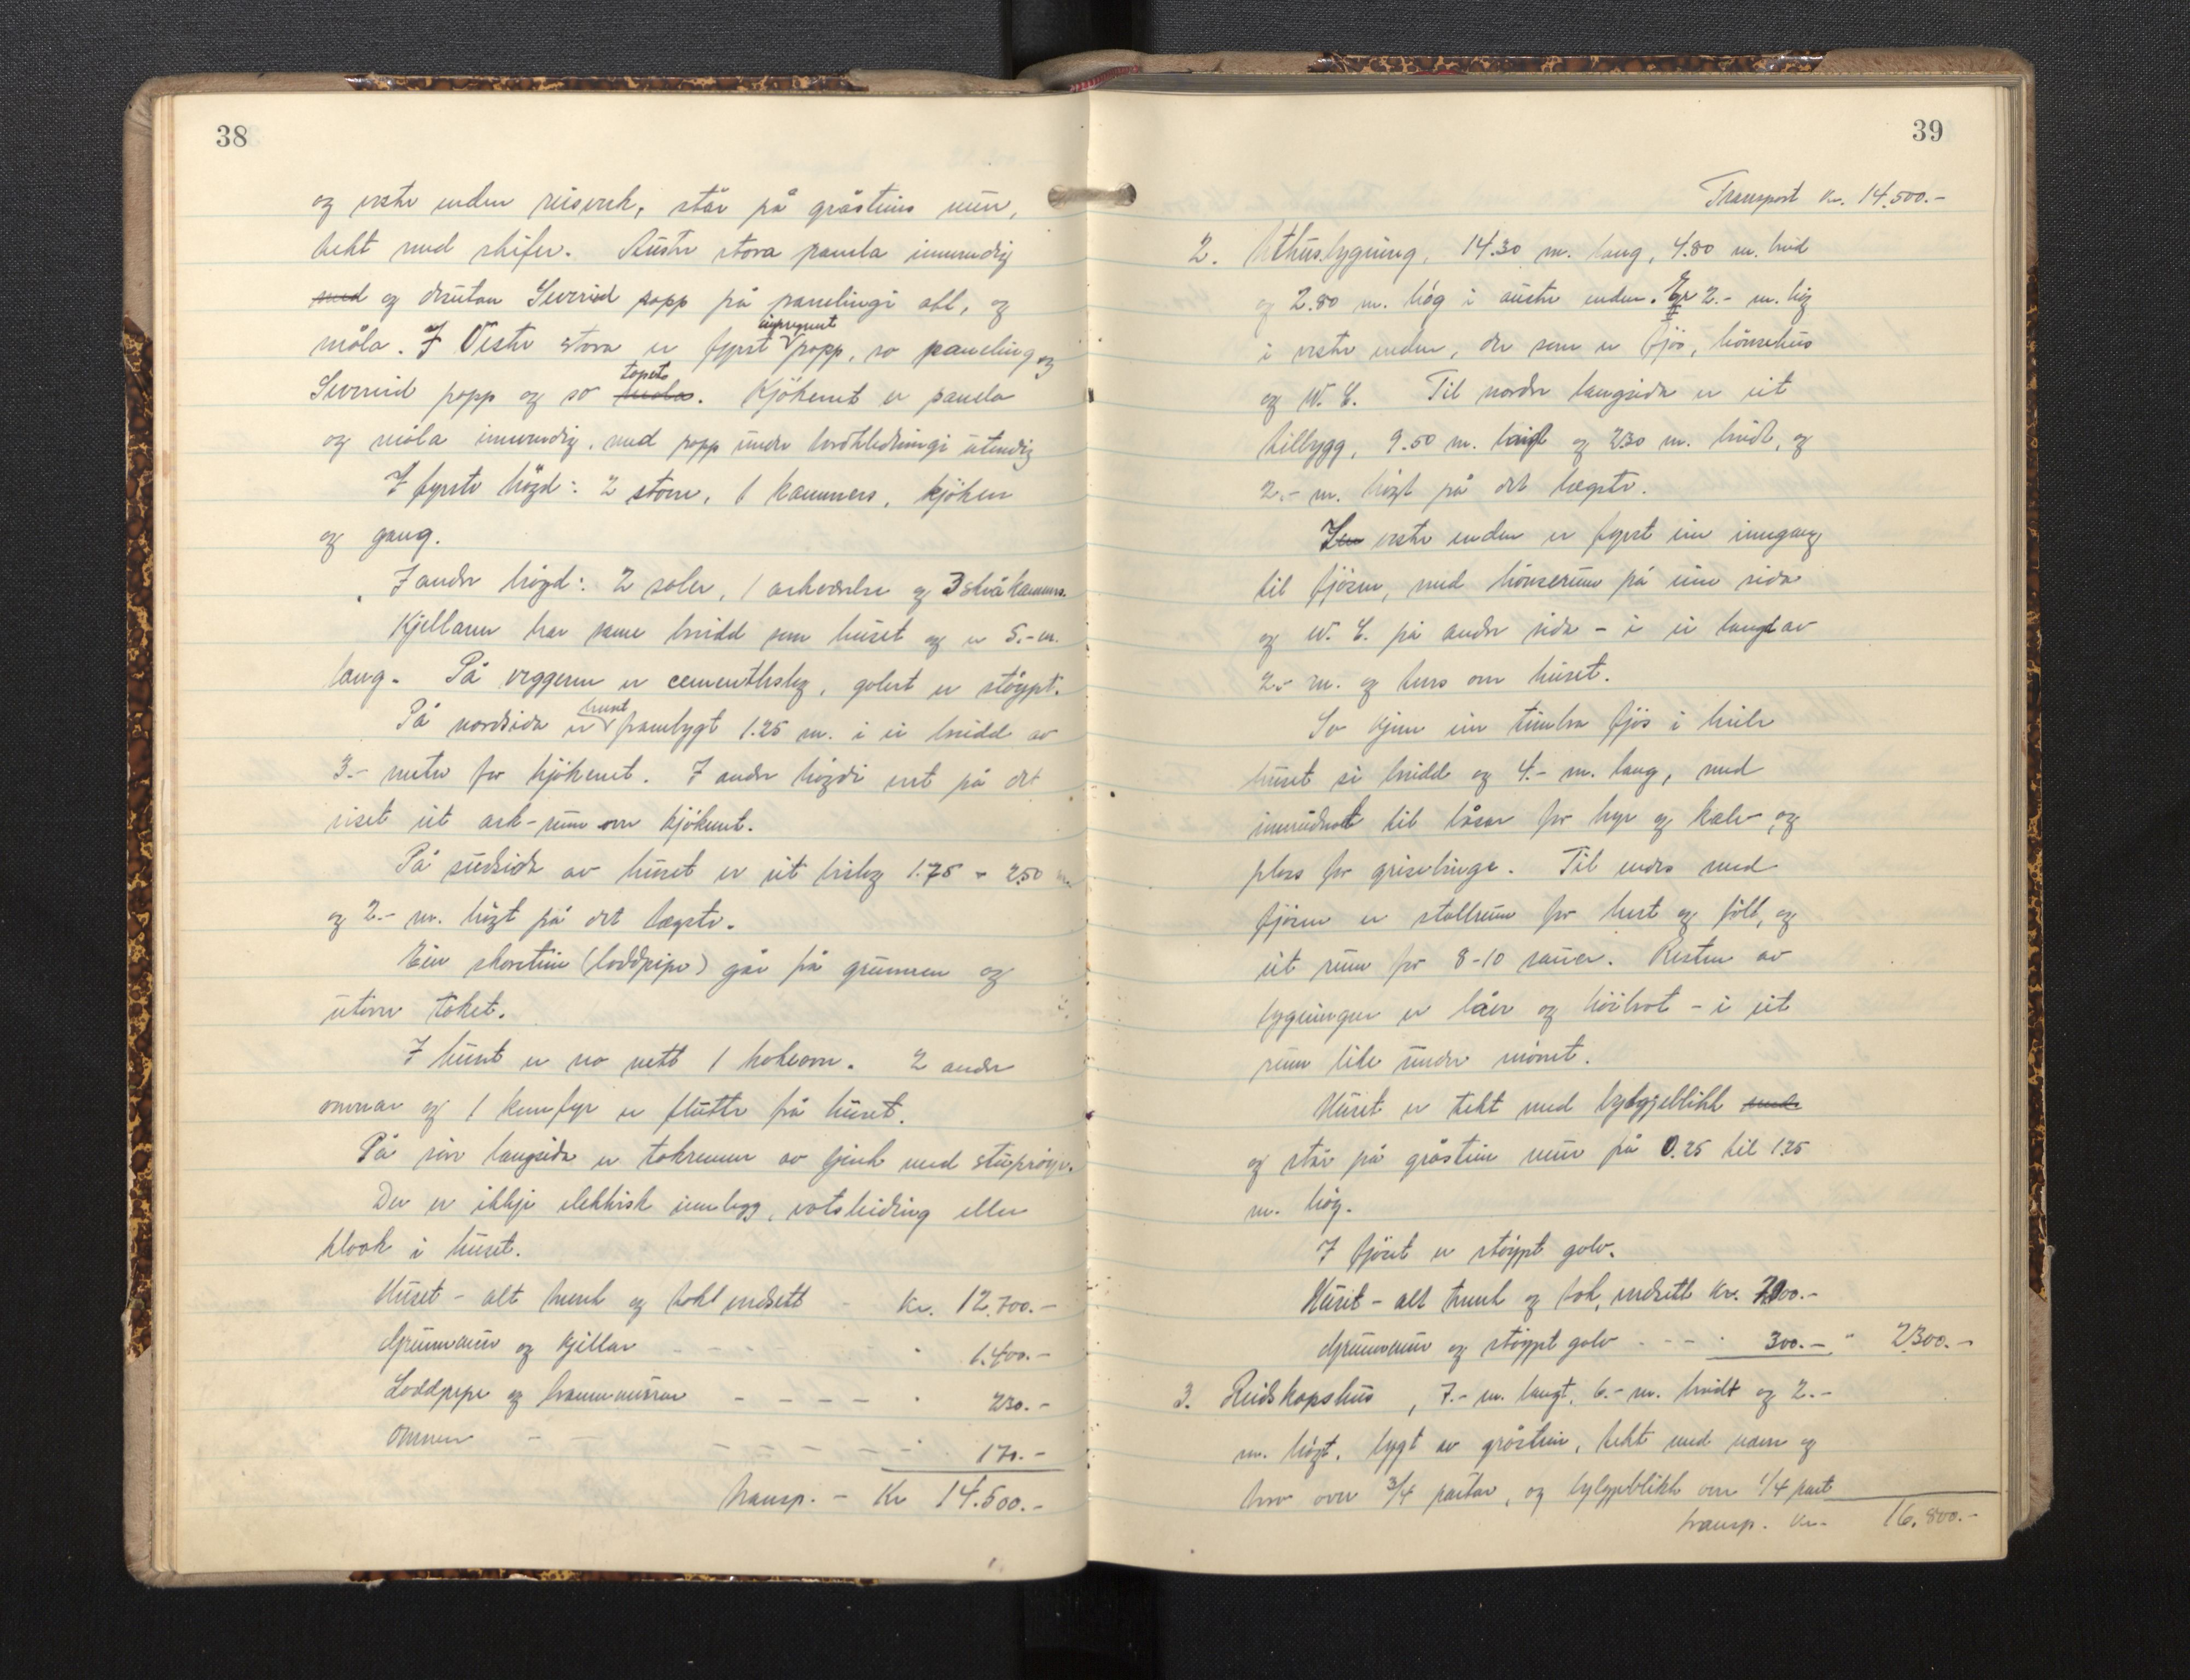 38
og vestre enden reisverk, står på gråsteins mur,
tekt med skifer. Austre stova panela innvendig
med og desutan Sverind papp på panelingi all, og
måla. I Vestre stova er fyrst impregnert papp, so paneling og
Sverind papp og so måla tapet. Kjøkenet er panela
og måla innvendig, med papp under bordkledningi utvendig
I fyrste høgd: 2 stover, 1 kammers, kjøken
og gang.
I andre høgd: 2 saler, 1 arkværelse og 3 småkammers.
Kjellaren har same breidd som huset og er 5.- m.
lang. På veggerne er cementbeslag, golvet er støypt.
På nordsida er huset frambygt 1.25 m. i ei breidd av
3.- meter for kjøkenet. I andre høgdi ert på det
viset eit ark-rum over kjøkenet.
På sudsida av huset er eit bislag 1.75 × 2.50 m.
og 2.- m. høgt på det lægste.
Ein skorstein (loddpipe) går frå grunnen og
utover taket.
I huset er no nett 1 kokeomn. 2 andre
omnar og 1 komfyr er flutte frå huset.
På eine langsida er takrenner av zink med stuprøyr.
Der er ikkje elektrisk innlegg, vatsleidning eller
kloak i huset.
Huset - alt treverk og takt verdsett - Kr. 12.700.-
Grunnmur og kjellar - - - - " 1.400.-
Loddpipe og brannmurar - - - - " 230.-
Omnen - - - - - - - " 170.-
transp. - Kr 14.500.-
39
Transport Kr. 14.500.-
2. Uthusbygning, 14.30 m. lang, 4.80 m. breid
og 2.80 m. høg i austre enden. Er 2.- m. høg
i vestre enden, der som er fjøs, hønsehus
og W. C. Til nordre langsida er eit
tilbygg, 9.50 m. langt og 2.30 m. breidt, og
2.- m. høgt på det lægste.
I vestre enden er fyrst ein inngang
til fjøsen, med hønserum på eine sida
og W. C. på andre sida - i ei lengd av
2.- m. og tvers over huset.
So kjem ein timbra fjøs i heile
huset si breidd og 4.- m. lang, med
innreidnet til båsar for kyr og kalv, og
plass for grisebinge. Til endes med
fjøsen er stallrum for hest og føll, og
eit rum for 8-10 sauer. Resten av
bygningen er låve og høibrot - i eit
rum like under mønet.
Huset er tekt med bylgjeblikk
og står på gråstein mur på 0.25 til 1.25
m. høg.
I fjøset er støypt golv.
Huset - alt treverk og tak, verdsett Kr. 2000.-
Grunnmur og støypt golv - - - " 300.- " 2300.-
3. Reidskapshus, 7.- m. langt, 6.- m. breidt og 2.-
m. høgt, bygt av gråstein, tekt med never og
torv over 3/4 partar, og bylgjeblikk over 1/4 part
transp. Kr. 16.800.-